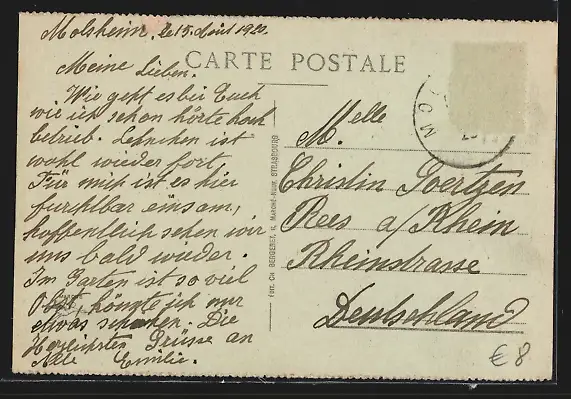 Molsheim, le 15. Août 1920.
CARTE POSTALE
Meine Lieben.
Wie geht es bei Euch
wie ich schon hörte hoch
betrieb. Lehnchen ist
wohl wieder fort,
Für mich ist es hier
furchtbar einsam,
hoffentlich sehen wir
uns bald wieder.
Im Garten ist so viel
Obst, könnte ich nur
etwas senden. Die
Herzlichsten Grüsse an
Alle Emilie.
FOTT. CH BERGERET, 11, MARCHÉ-NEUF, STRASBOURG
M.elle
Christin Goertzen
Rees a/Rhein
Rheinstrasse
Deutschland
€ 8